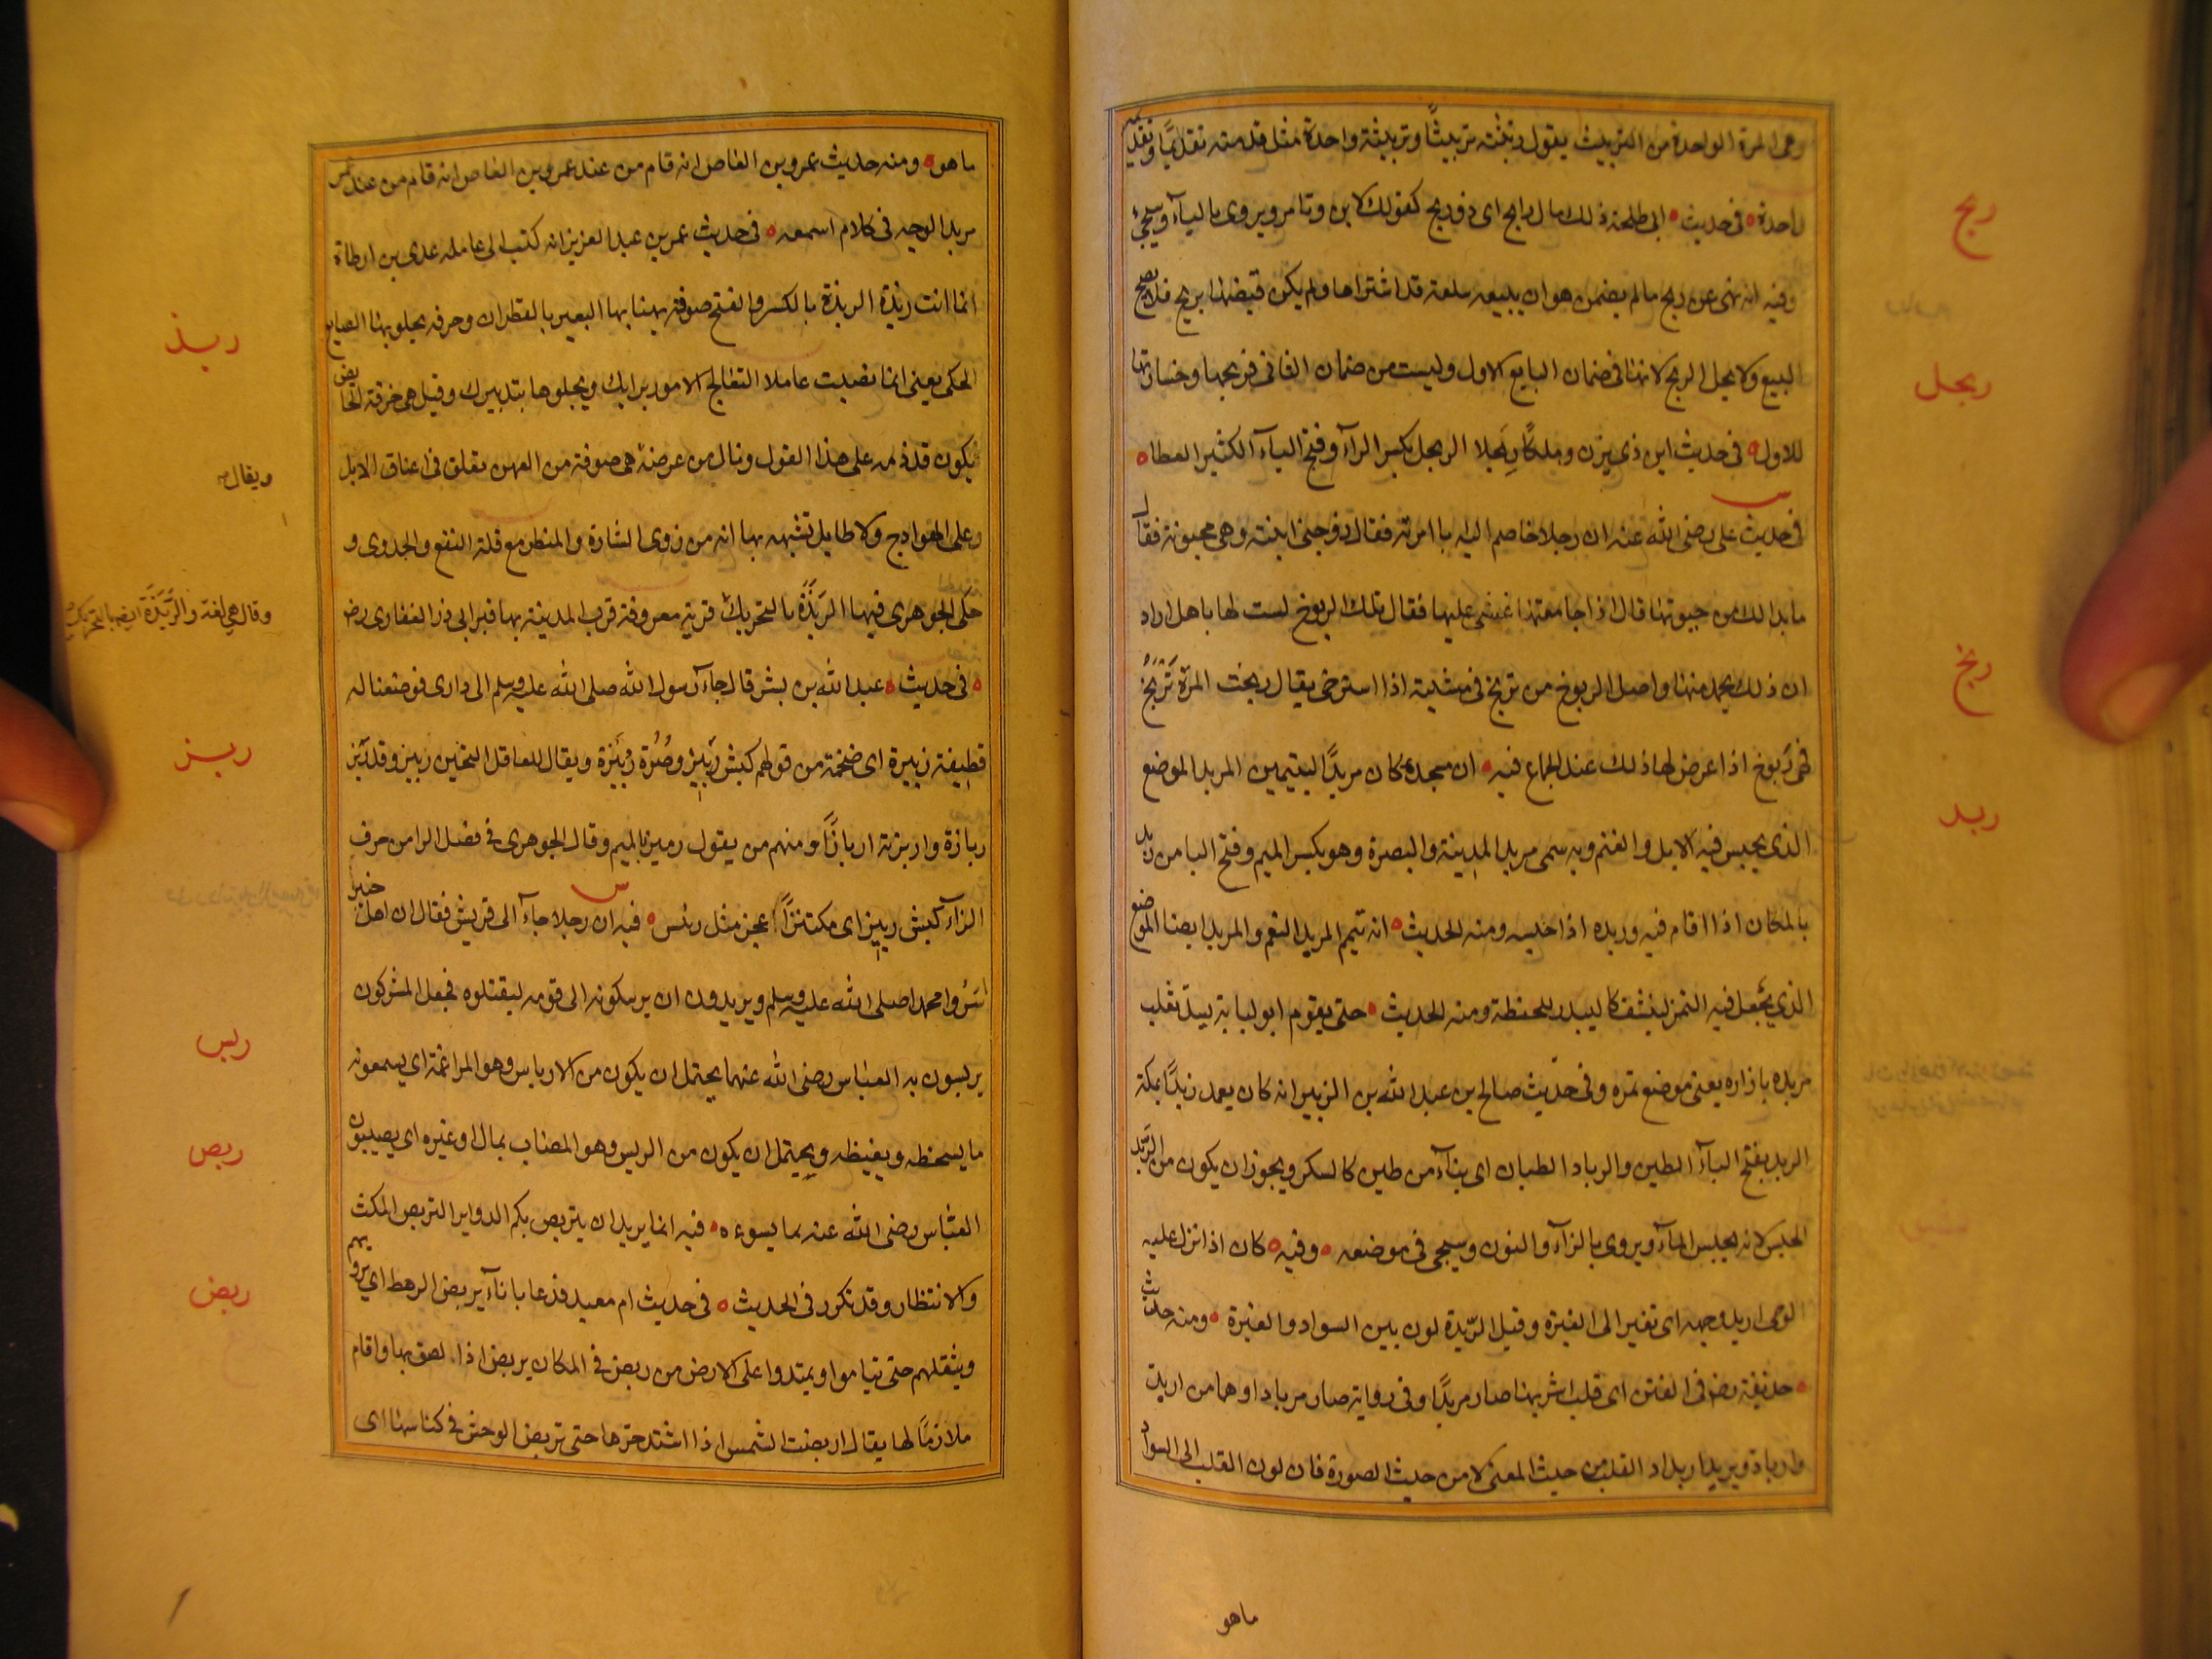 وهى المرة الواحدة من التربيث يقول ربثته تربيثًا وتربيثة واحدة مثل قدمته تقديمًا وتقديمة
ربح
واحدة ه فى حديث ه ابى طلحة ذلك مال رابح اى ذو ربح كقولك لابن وتامر ويروى بالياء وسيجئ
وفيه انه نهى عن ربح مالم يضمن هو ان يبيعه سلعة قد اشتراها ولم يكن قبضها بربح فلا يصح
ربحل
البيع ولا يحل الربح لانها فى ضمان البايع الاول وليست من ضمان الثانى فربحها وخسارتها
للاول ه فى حديث ابن ذى يزن وملكًا رِبَحلا الربحل بكسر الراء وفتح الباء الكثير العطا ه
فى حديث على رضى الله عنه ان رجلا خاصم اليه با امرته فقال زوجنى ابنته وهى مجنونة فقال
ما بدا لك من جنونها قال اذا جامعتها غشى عليها فقال تلك الربوخ لست لها باهل اراد
ربخ
ان ذلك يحمد منها واصل الربوخ من تربخ فى مشيته اذا استرخى يقال ربخت المرة تَرْبَخُ
فهى رَبوخ اذا عرض لها ذلك عند الجماع فيه ه ان مسجده كان مربدًا ليتيمين المربد الموضع
ربد
الذى يحبس فيه الابل والغنم وبه سمى مربد المدينة والبصرة وهو بكسر الميم وفتح البا من ربد
بالمكان اذا اقام فيه وربده اذا حبسه ومنه الحديث ه انه تيمم المربد النعم والمربد ايضا الموضع
الذى يجعل فيه التمر لينشف كالبيدر للحنطة ومنه الحديث ه حتى يقوم ابو لبابة يسد ثعلب
مربده بازاره يعنى موضع تمره وفى حديث صالح بن عبد الله بن الزبير انه كان يعمد ربدًا بمكة
الربد بفتح الباء الطين والرباد الطيان اى بناء من طين كالسكر ويجوز ان يكون من الرَّبد
الحبس لانه يحبس الماء ويروى بالزاء والنون وسيجى فى موضعه ه وفيه ه كان اذا نزل عليه
الوحى اربد وجهه اى تغير الى الغبرة وقيل الرّبدة لون بين السواد والغبرة ه ومنه حديث
ه حذيفة رض فى الفتن اى قلب اشربها صار مربدًا وفى رواية صار مربادا وهما من اربد
وارباد ويريد اربداد القلب من حيث المعنى لا من حيث الصورة فان لون القلب الى السواد
ماهو
ما هو ه ومنه حديث عمرو بن العاص انه قام من عند عمرو بن العاص انه قام من عند عمر
مربد الوجه فى كلام اسمعه ه فى حديث عمر بن عبد العزيز انه كتب الى عامله عدى بن ارطاة
ربذ
انما انت ربذة الربذة بالكسر والفتح صوفة يهنا بها البعير بالقطران وخرقة يجلو بها الصايغ
الحلى يعنى انما نصبت عاملا لتعالج الامور برايك ويجلوها بتدبيرك وقيل هى خرقة الحائض
ويقال
يكون قد ذمه على هذا القول ونال من عرضه هى صوفة من العهن يعلق فى اعناق الابل
وعلى الهوادج ولا طايل تشبهه بها انه من ذوى الشارة والمنظر مع قلة النفع والجدوى و
وقال هى لغة والرَّبَذَة ايضا بالتحريك
حكى الجوهرى فيها الرَبَذَةُ بالتحريك قرية معروفة قرب المدينة بها قبر ابى ذر الغفارى رض
ه فى حديث ه عبد الله بن بشر قال جاء رسول الله صلى الله عليه وسلم الى دارى فوضعنا له
ربز
قطيفة ربيزة اى ضخمة من قولهم كبش رَبيز وصُرّة ربيزة ويقال للعاقل الثخين ربيز وقد ربز
ربازة واربزته اربازًا ومنهم من يقول رميز بالميم وقال الجوهرى فى فصل الرا من حرف
الزاء كبش ربيز اى مكتنزًا عجز مثل ربس ه فيه ان رجلا جاء الى قريش فقال ان اهل خيبر
ربس
اَسَرُوا محمدا صلى الله عليه وسلم ويريدون ان يرسكونه الى قومه ليقتلوه فجعل المشركون
يربسون به العباس رضى الله عنهما يحتمل ان يكون من الارباس وهو المراغمة اى يسمعونه
ربص
ما يسخطه ويغيظه ويحتمل ان يكون من الربس وهو المصاب بمال او غيره اى يصيبون
العباس رضى الله عنه بما يسوءه ه فيه انما يريد ان يتربص بكم الدواير التربص المكث
ربض
والانتظار وقد تكرر فى الحديث ه فى حديث ام معبد فدعا باناء يربض الرهط اى يرويهم
ويثقلهم حتى يناموا ويمتدوا على الارض من ربض فى المكان يربض اذا لصق بها واقام
ملازمًا لها يقال اربضت الشمس اذا اشتد حرها حتى تربض الوحش فى كناسها اى